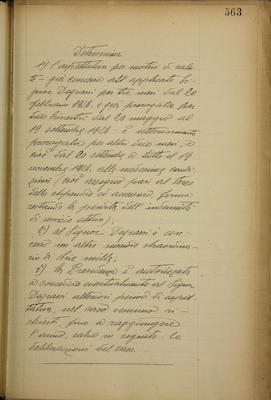 563
Determina
1°) l'aspettativa per motivi di salu-
te - già concessa all'applicato Si-
gnor Degrani per tre mesi dal 20
febbraio 1928 e già prorogata per
due trimestri dal 20 maggio al
19 settembre 1928 - è ulteriormente
prorogata per altri due mesi, e
cioè dal 20 settembre a tutto il 19
novembre 1928, alle medesime condi-
zioni (con assegno pari al terzo
dello stipendio di annesso, ferma
restando la perdita dell'indennità
di servizio attivo);
2°) al Signor Degrani è con-
cesso un altro sussidio straordina-
rio di lire mille;
3°) la Presidenza è autorizzata
a concedere eventualmente al Signor
Degrani ulteriori periodi di aspet-
tativa, nel caso venissero ri-
chiesti, fino a raggiungere
l'anno, salvo in seguito le
deliberazioni del caso.